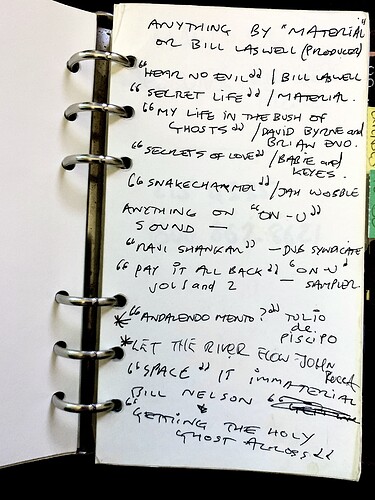 ANYTHING BY "MATERIAL"
OR BILL LASWELL (PRODUCER)
"HEAR NO EVIL" / BILL LASWELL
"SECRET LIFE" / MATERIAL.
"MY LIFE IN THE BUSH OF
GHOSTS" / DAVID BYRNE and
BRIAN ENO.
"SECRETS OF LOVE" / BABIE and
KEYES.
"SNAKECHARMER" / JAH WOBBLE
ANYTHING ON "ON-U"
SOUND —
"RAVI SHANKAR" — DUB SYNDICATE
"PAY IT ALL BACK" "ON-U"
VOLS 1 and 2 — SAMPLER.
* "ANDALENDO MENTO?" TULIO
de.
PISCIPO
* LET THE RIVER FLOW - JOHN
BECCA
"SPACE" IT IMMATERIAL
BILL NELSON
"GETTING THE HOLY
GHOST ACROSS"